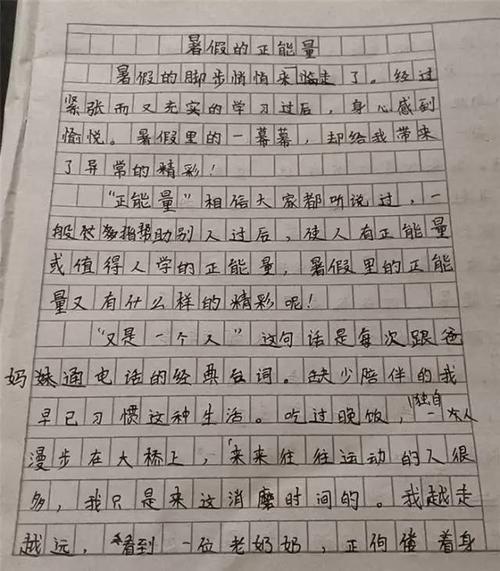 暑假的正能量
暑假的脚步悄悄来临走了。经过
紧张而又充实的学习过后，身心感到
愉悦。暑假里的一幕幕，却给我带来
了异常的精彩！
"正能量"相信大家都听说过，一
般指帮助别人过后，使人有正能量
或值得人学的正能量，暑假里的正能
量又有什么样的精彩呢！
"又是一个人"这句话是每次跟爸
妈妹通电话的经典台词。缺少陪伴的我
早已习惯这种生活。吃过晚饭，独自一人
漫步在大桥上，来来往往运动的人很
多，我只是来这消磨时间的。我越走
越远，看到一位老奶奶，正佝偻着身